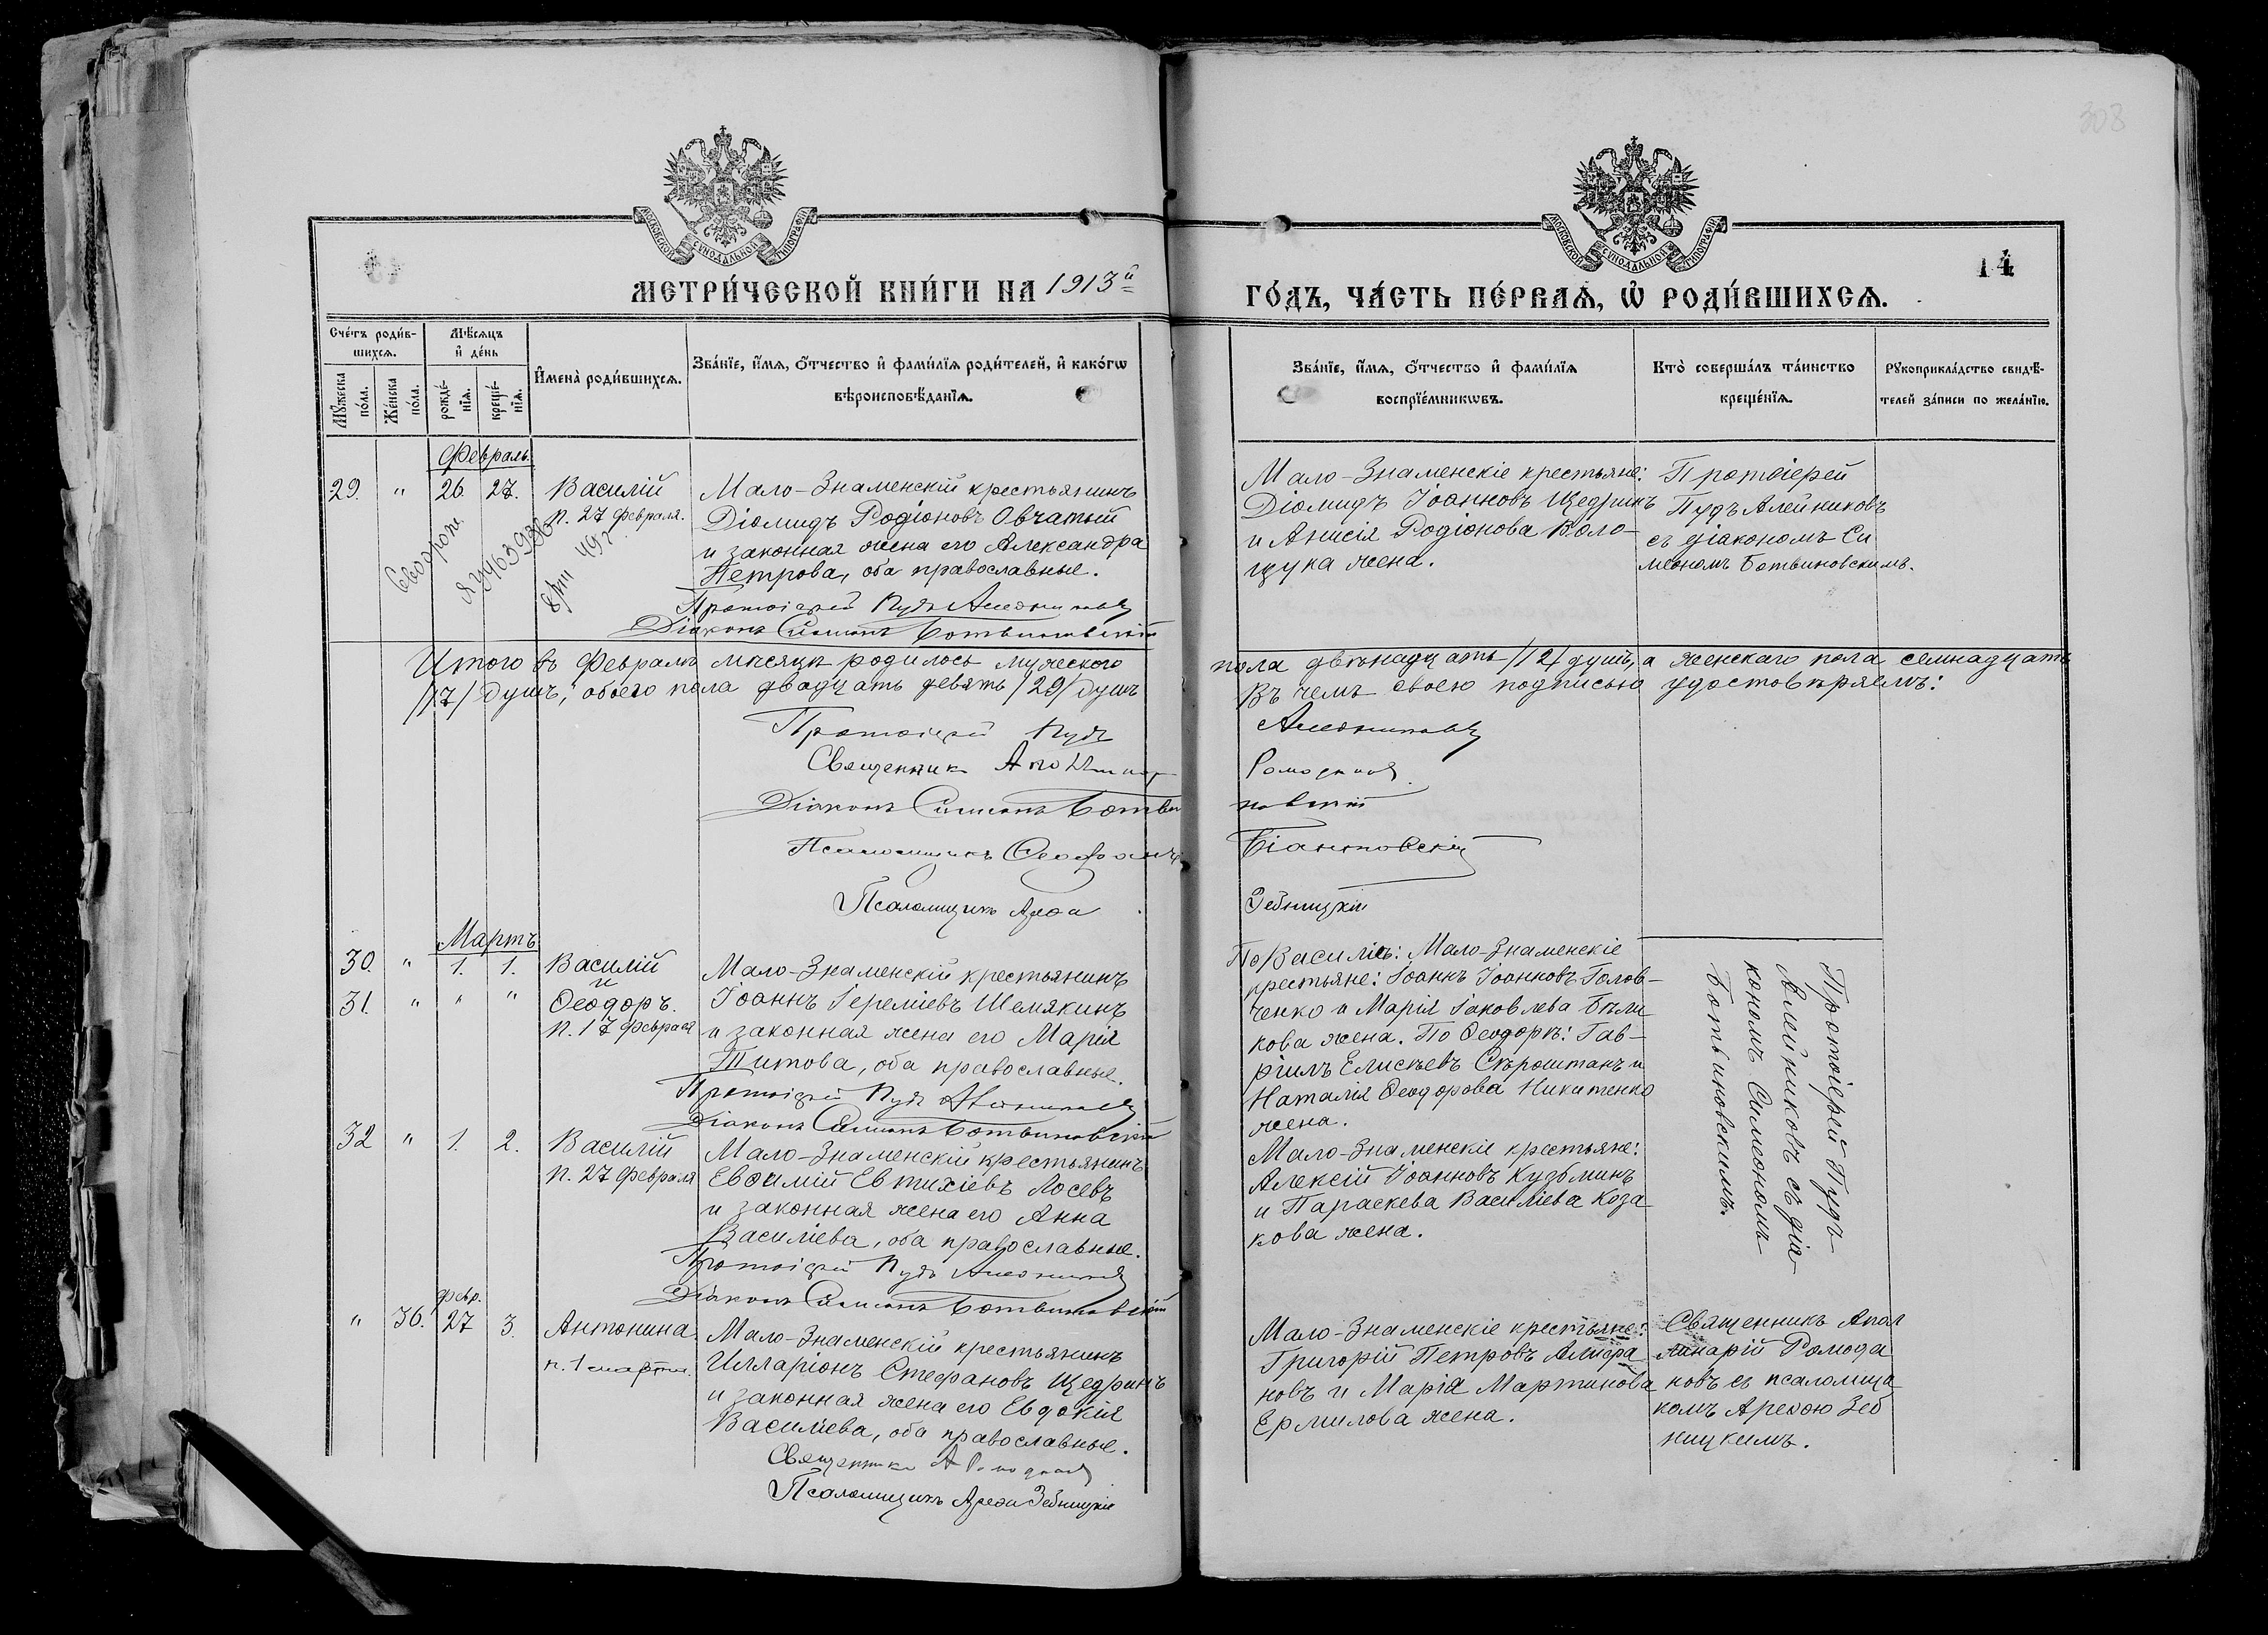 308
МОСКОВСКОЙ СѴНОДАЛЬНОЙ ТИПОГРАФІИ
МОСКОВСКОЙ СѴНОДАЛЬНОЙ ТИПОГРАФІИ
14
МЕТРИ́ЧЕСКОЙ КНИ́ГИ НА 1913й
ГО́ДЪ, ЧА́СТЬ ПЕ́РВАѦ, Ѡ҆ РОДИ́ВШИХСѦ.
Сче́тъ роди́в-
шихсѧ.
Мꙋ́жеска по́ла.
Же́нска по́ла.
Мѣ́сѧцъ
и҆ де́нь
рожде́-
нїѧ.
креще́-
нїѧ.
И҆мена̀ роди́вшихсѧ.
Зва́нїе, и҆́мѧ, ѻ҆́тчество и҆ фами́лїѧ роди́телей, и҆ како́гѡ
вѣроисповѣ́данїѧ.
Зва́нїе, и҆́мѧ, ѻ҆́тчество и҆ фами́лїѧ
воспрїе́мникѡвъ.
Кто̀ соверша́лъ та́инство
креще́нїѧ.
Рꙋкоприкла́дство свидѣ́-
телей за́писи по жела́нїю.
Февраль.
29. " 26. 27. Василій
п. 27 февраля.
Мало-Знаменскій крестьянинъ
Діомидъ Родіоновъ Овчатый
и законная жена его Александра
Петрова, оба православные.
Протоіерей Пудъ Алейниковъ
Діаконъ Симеонъ Ботвиновскій
Мало-Знаменскіе крестьяне:
Діомидъ Іоанновъ Щедринъ
и Анисія Родіонова Коло-
щука жена.
Протоіерей
Пудъ Алейниковъ
съ діакономъ Си
меономъ Ботвиновскимъ.
Итого въ Февралѣ мѣсяцѣ родилось мужескаго пола двѣнадцать /12/ душъ, а женскаго пола семнадцать
/17/ душъ; обоего пола двадцать девять /29/ душъ Въ чемъ своею подписью удостовѣряемъ:
Протоіерей Пудъ Алейниковъ
Священникъ Аполлинар Ромодановъ
Діаконъ Симеонъ Ботвиновскій
Псаломщикъ Ѳеофанъ Біантовскій
Псаломщикъ Ареѳа Зебницкій
Мартъ
30. " 1. 1. Василій
и
31. " " " Ѳеодоръ.
п. 17 февраля
Мало-Знаменскій крестьянинъ
Іоаннъ Іереміевъ Шемякинъ
и законная жена его Марія
Титова, оба православные.
Протоіерей Пудъ Алейниковъ
Діаконъ Симеонъ Ботвиновскій
По Василіѣ: Мало-Знаменскіе
крестьяне: Іоаннъ Іоанновъ Голов-
ченко и Марія Іаковлева Бѣли
кова жена. По Ѳеодорѣ: Гав-
ріилъ Елисѣевъ Скроштанъ и
Наталія Ѳеодорова Никитенко
жена.
Протоіерей Пудъ
Алейниковъ съ діа-
кономъ Симеономъ
Ботвиновскимъ.
32 " 1. 2. Василій
п. 27 февраля
Мало-Знаменскій крестьянинъ
Евѳимій Евтихіевъ Лосевъ
и законная жена его Анна
Василіева, оба православные.
Протоіерей Пудъ Алейниковъ
Діаконъ Симеонъ Ботвиновскій
Мало-Знаменскіе крестьяне:
Алексій Іоанновъ Кузьминъ
и Параскева Василіева Коза
кова жена.
февр.
" 36. 27 3. Антонина
п. 1 марта.
Мало-Знаменскій крестьянинъ
Илларіонъ Стефановъ Щедринъ
и законная жена его Евдокія
Василіева, оба православные.
Священникъ А Ромодановъ
Псаломщикъ Ареѳа Зебницкій
Мало-Знаменскіе крестьяне:
Григорій Петровъ Алифа
новъ и Марія Мартинова
Ермилова жена.
Священникъ Апол
линарій Ромода
новъ съ псаломщи
комъ Ареѳою Зеб
ницкимъ.